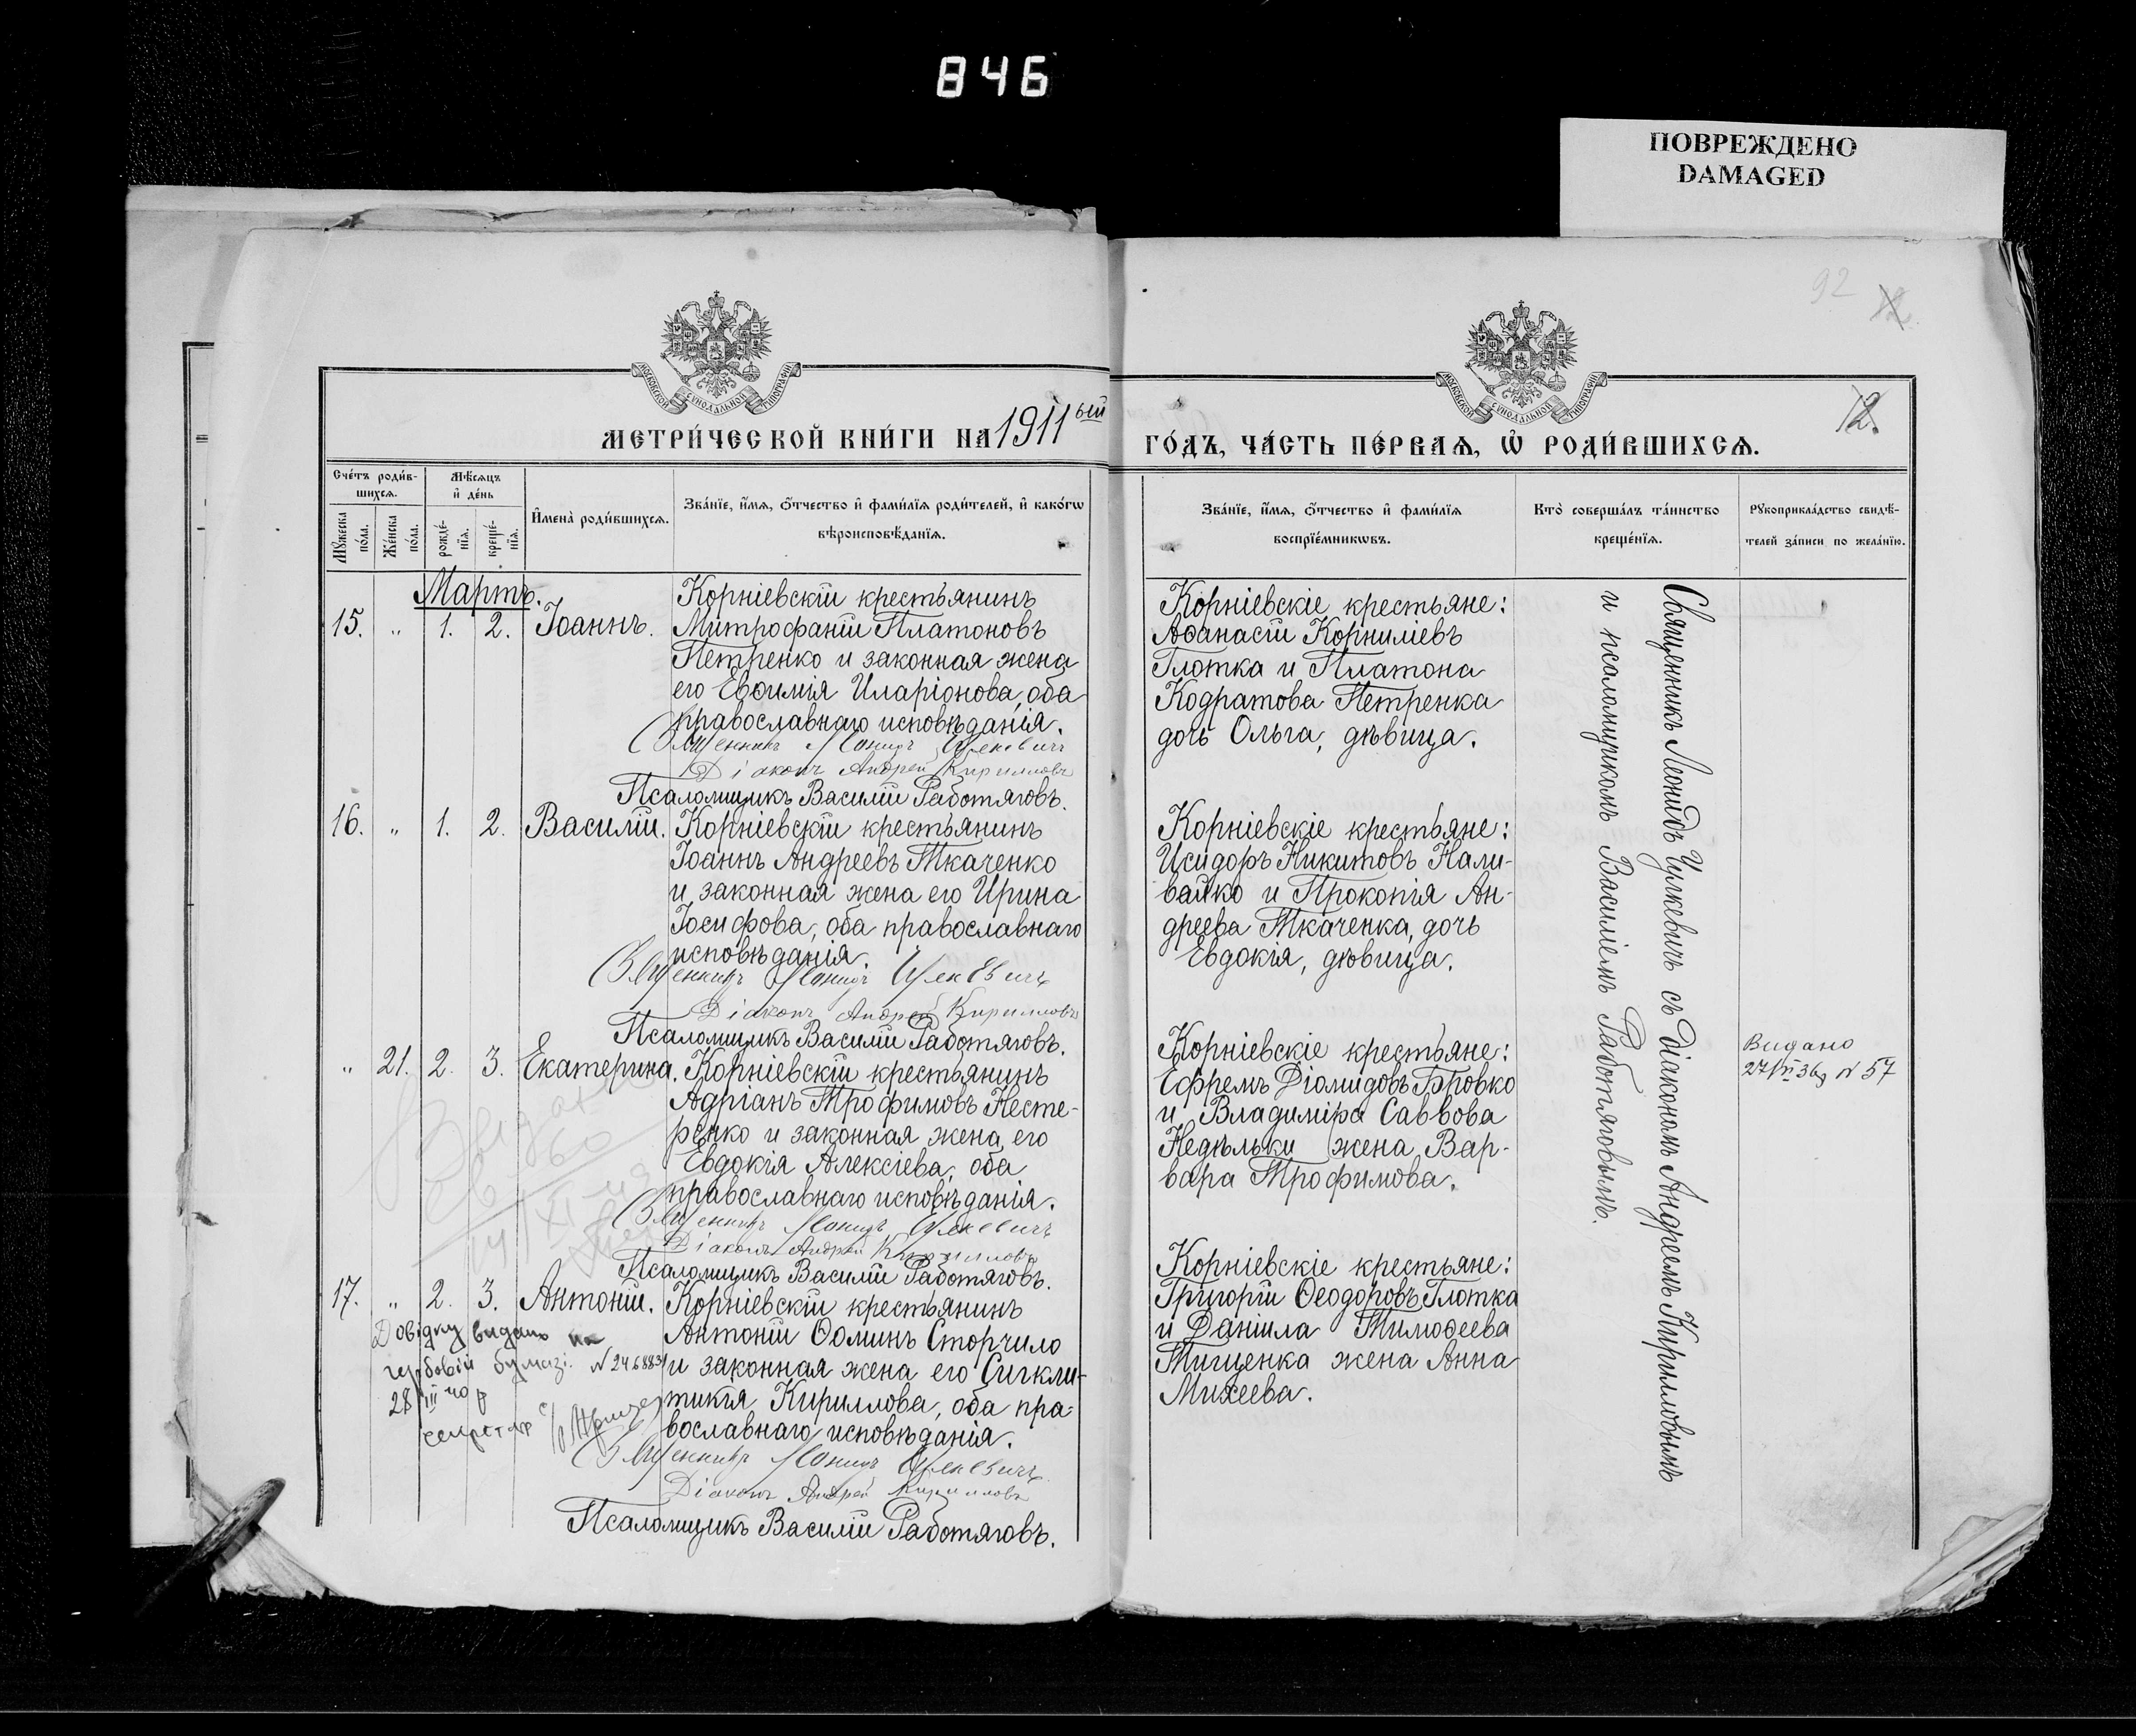 846
ПОВРЕЖДЕНО
DAMAGED
92
12
12.
МОСКОВСКОЙ СѴНОДАЛЬНОЙ ТИПОГРАФІИ
МОСКОВСКОЙ СѴНОДАЛЬНОЙ ТИПОГРАФІИ
МЕТРИ́ЧЕСКОЙ КНИ́ГИ НА 1911ый
ГО́ДЪ, ЧА́СТЬ ПЕ́РВАѦ, Ѽ РОДИ́ВШИХСѦ.
Сче́тъ роди́в-
шихсѧ.
Мꙋжеска по́ла.
Же́нска по́ла.
Мѣ́сѧцъ
и҆ де́нь
рожде́-
нїѧ.
креще́-
нїѧ.
И҆мена̀ роди́вшихсѧ.
Зва́нїе, и҆́мѧ, ѻ҆́тчество и҆ фами́лїѧ роди́телей, и҆ како́гѡ
вѣроисповѣ́данїѧ.
Зва́нїе, и҆́мѧ, ѻ҆́тчество и҆ фами́лїѧ
воспрїе́мникѡвъ.
Кто̀ соверша́лъ та́инство
креще́нїѧ.
Рꙋкоприкла́дство свидѣ́-
телей за́писи по жела́нїю.
Мартъ.
15. " 1. 2. Іоаннъ.
Корніевскій крестьянинъ
Митрофаній Платоновъ
Петренко и законная жена
его Евѳимія Иларіонова, оба
православнаго исповѣданія.
Священникъ Леонидъ Цулкевичъ
Діаконъ Андрей Кирилловъ
Псаломщикъ Василій Работяговъ.
Корніевскіе крестьяне:
Аѳанасій Корниліевъ
Глотка и Платона
Кодратова Петренка
дочь Ольга, дѣвица.
16. " 1. 2. Василій.
Корніевскій крестьянинъ
Іоаннъ Андреевъ Ткаченко
и законная жена его Ирина
Іосифова, оба православнаго
исповѣданія.
Священникъ Леонидъ Цулкевичъ
Діаконъ Андрей Кирилловъ
Псаломщикъ Василій Работяговъ.
Корніевскіе крестьяне:
Исидоръ Никитовъ Нали-
вайко и Прокопія Ан-
дреева Ткаченка, дочь
Евдокія, дѣвица.
" 21. 2. 3. Екатерина.
Корніевскій крестьянинъ
Адріанъ Трофимовъ Несте-
ренко и законная жена его
Евдокія Алексіева, оба
православнаго исповѣданія.
Священникъ Леонидъ Цулкевичъ
Діаконъ Андрей Кирилловъ
Псаломщикъ Василій Работяговъ.
Корніевскіе крестьяне:
Ефремъ Діомидовъ Бровко
и Владиміра Саввова
Недѣльки жена Вар-
вара Трофимова.
Видано
27/VI 36р N 57
17. " 2. 3. Антоній.
Корніевскій крестьянинъ
Антоній Ѳоминъ Сторчило
и законная жена его Сигкли-
тикія Кириллова, оба пра-
вославнаго исповѣданія.
Священникъ Леонидъ Цулкевичъ
Діаконъ Андрей Кирилловъ
Псаломщикъ Василій Работяговъ.
Довідку видано на
гербовій бумазі. N 246883
28/III 40 р
секретар с/р
Корніевскіе крестьяне:
Григорій Ѳеодоровъ Глотка
и Даніила Тимоѳеева
Тищенка жена Анна
Михеева.
Священникъ Леонидъ Цулкевичъ съ діакономъ Андреемъ Кирилловымъ
и псаломщикомъ Василіемъ Работяговымъ.